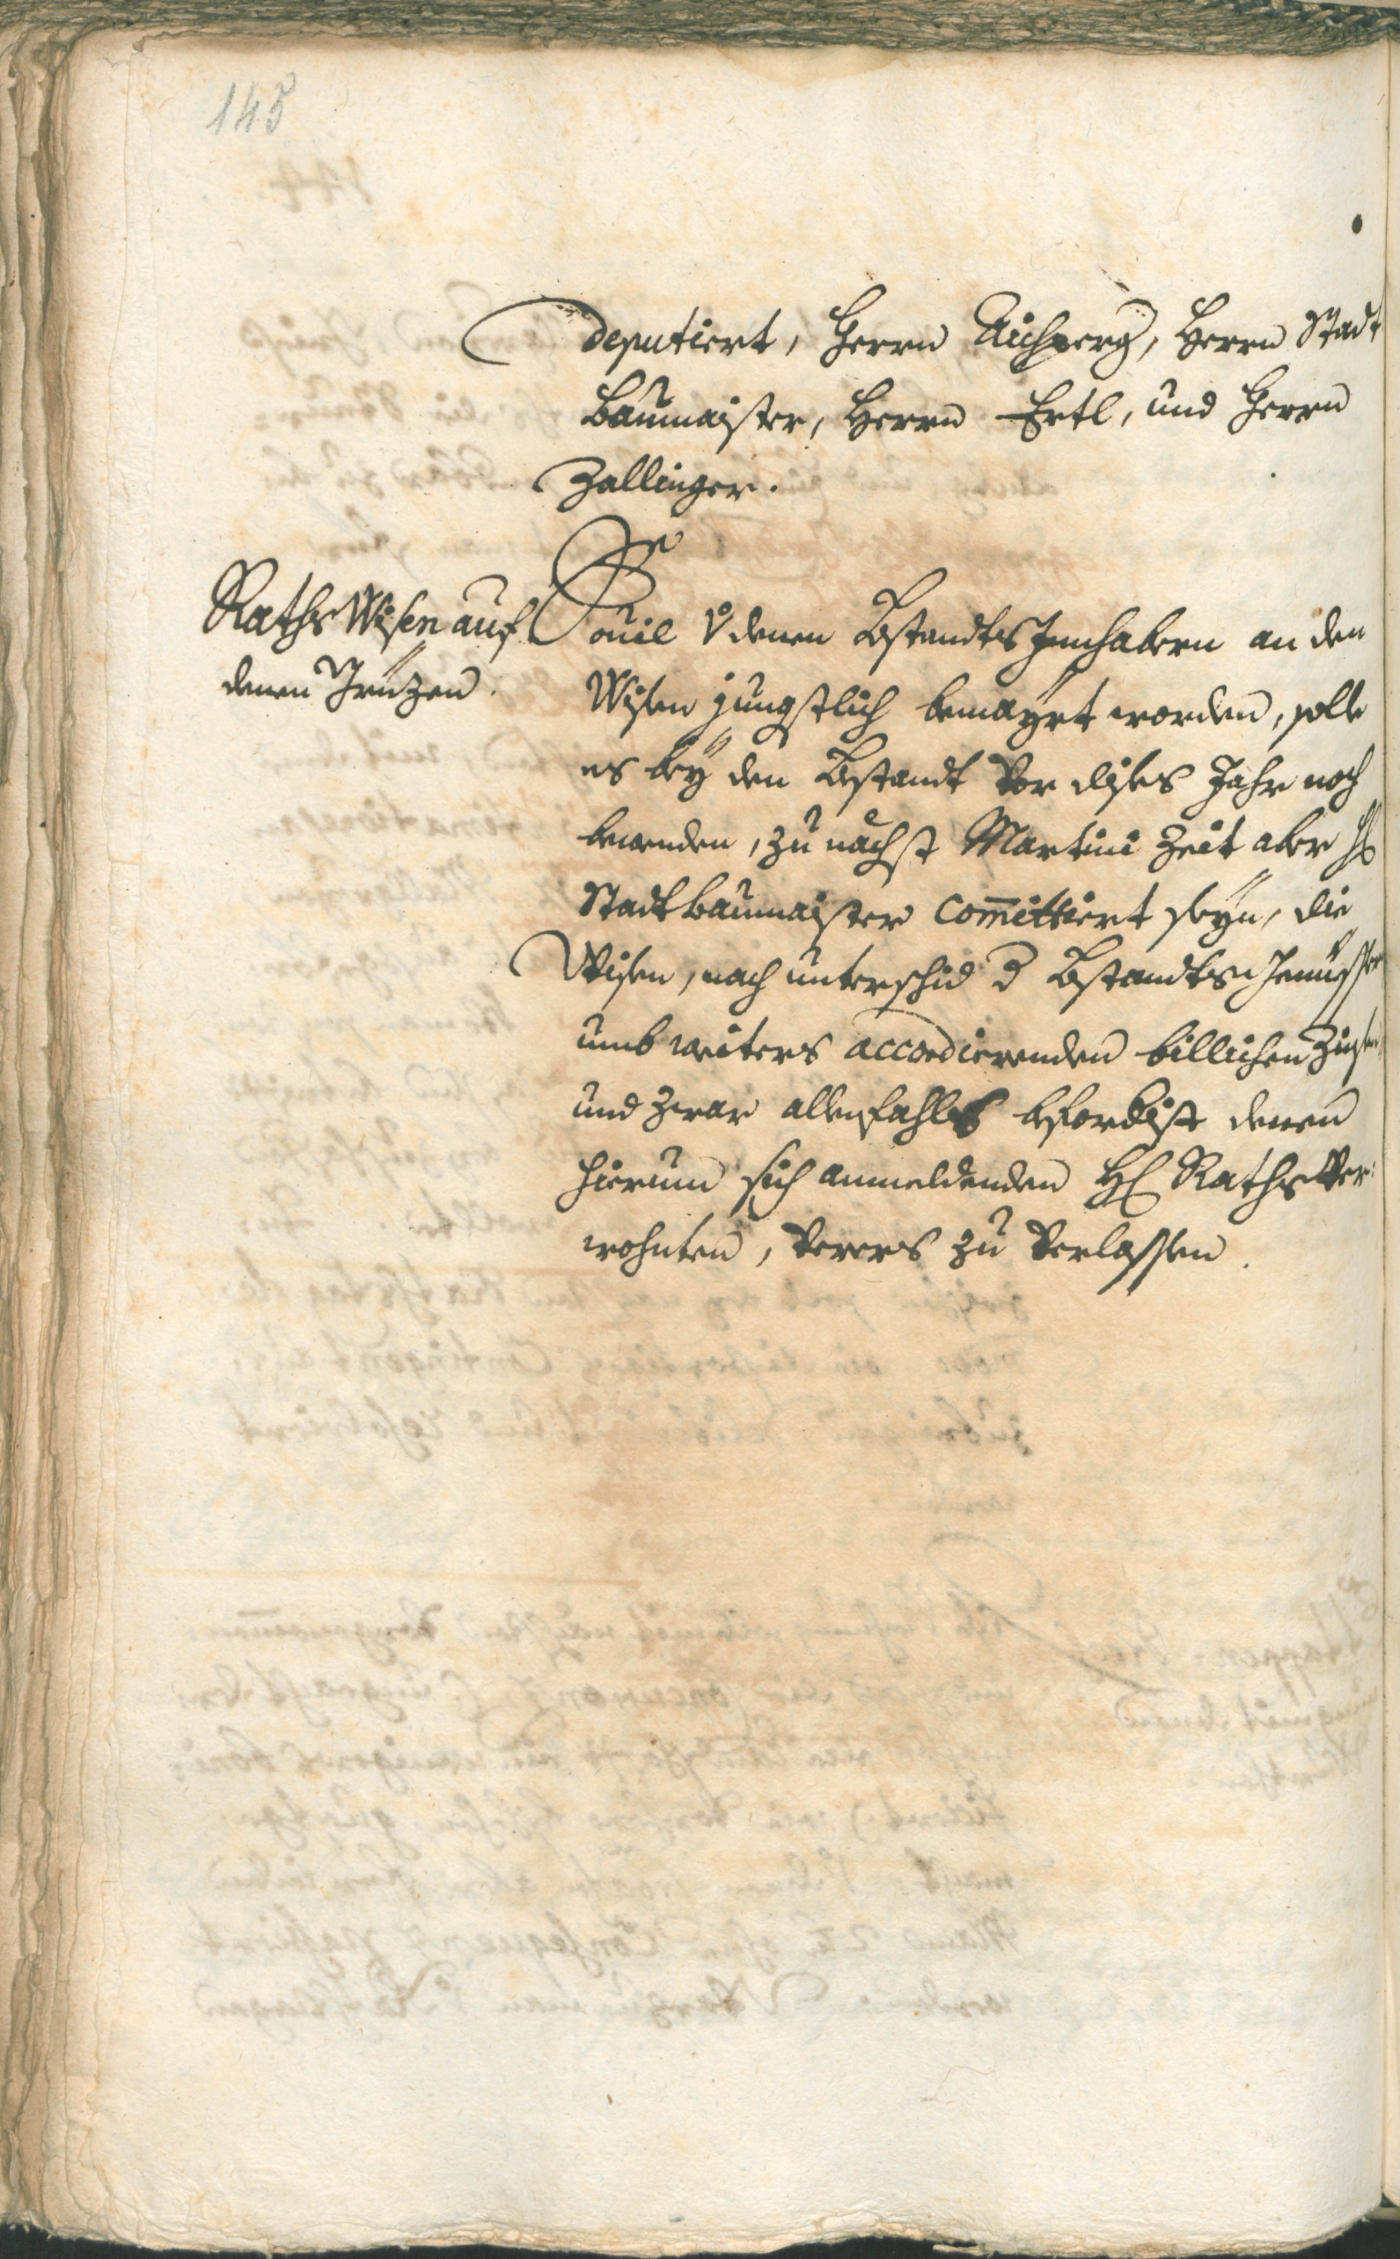 145
Deputiert, Herrn Aichperg, Herrn Stadt
Baumaister, Herrn Ertl, und Herrn
Zallinger.
Raths Wisen auf
denen Trüzen.
Souil denen Bstandts Innhabern an den
Wisen jungstlich bemayrt worden, solle
es bey den Bstandt vor dises Jahr noch
bewenden, zu nächst Martini Zeit aber H
Stadtbaumaister Committiert seyn, die
Wisen, nach unterschid Bstandts
umb weiters accordierenden billichen Zinsen
und zwar allenfahls denen
hierumb sich anmeldenden H Raths Ver:
wohnten, verers zu verlassen.